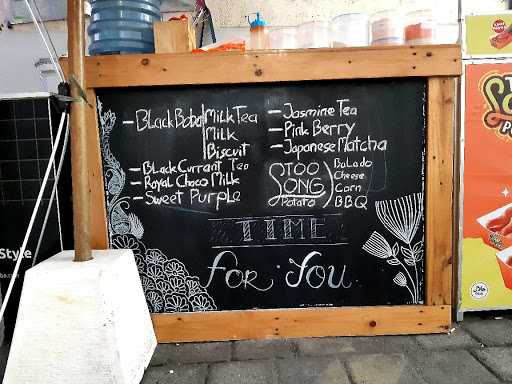 - BLack Boba Milk Tea
Milk
Biscuit
- BLack Currant Tea
- Royal Choco Milk
- Sweet Purple
- Jasmine Tea
- Pink Berry
- Japanese Matcha
TOO
LONG
Potato
BaLado
Cheese
Corn
BBQ
TIME
for You
Style